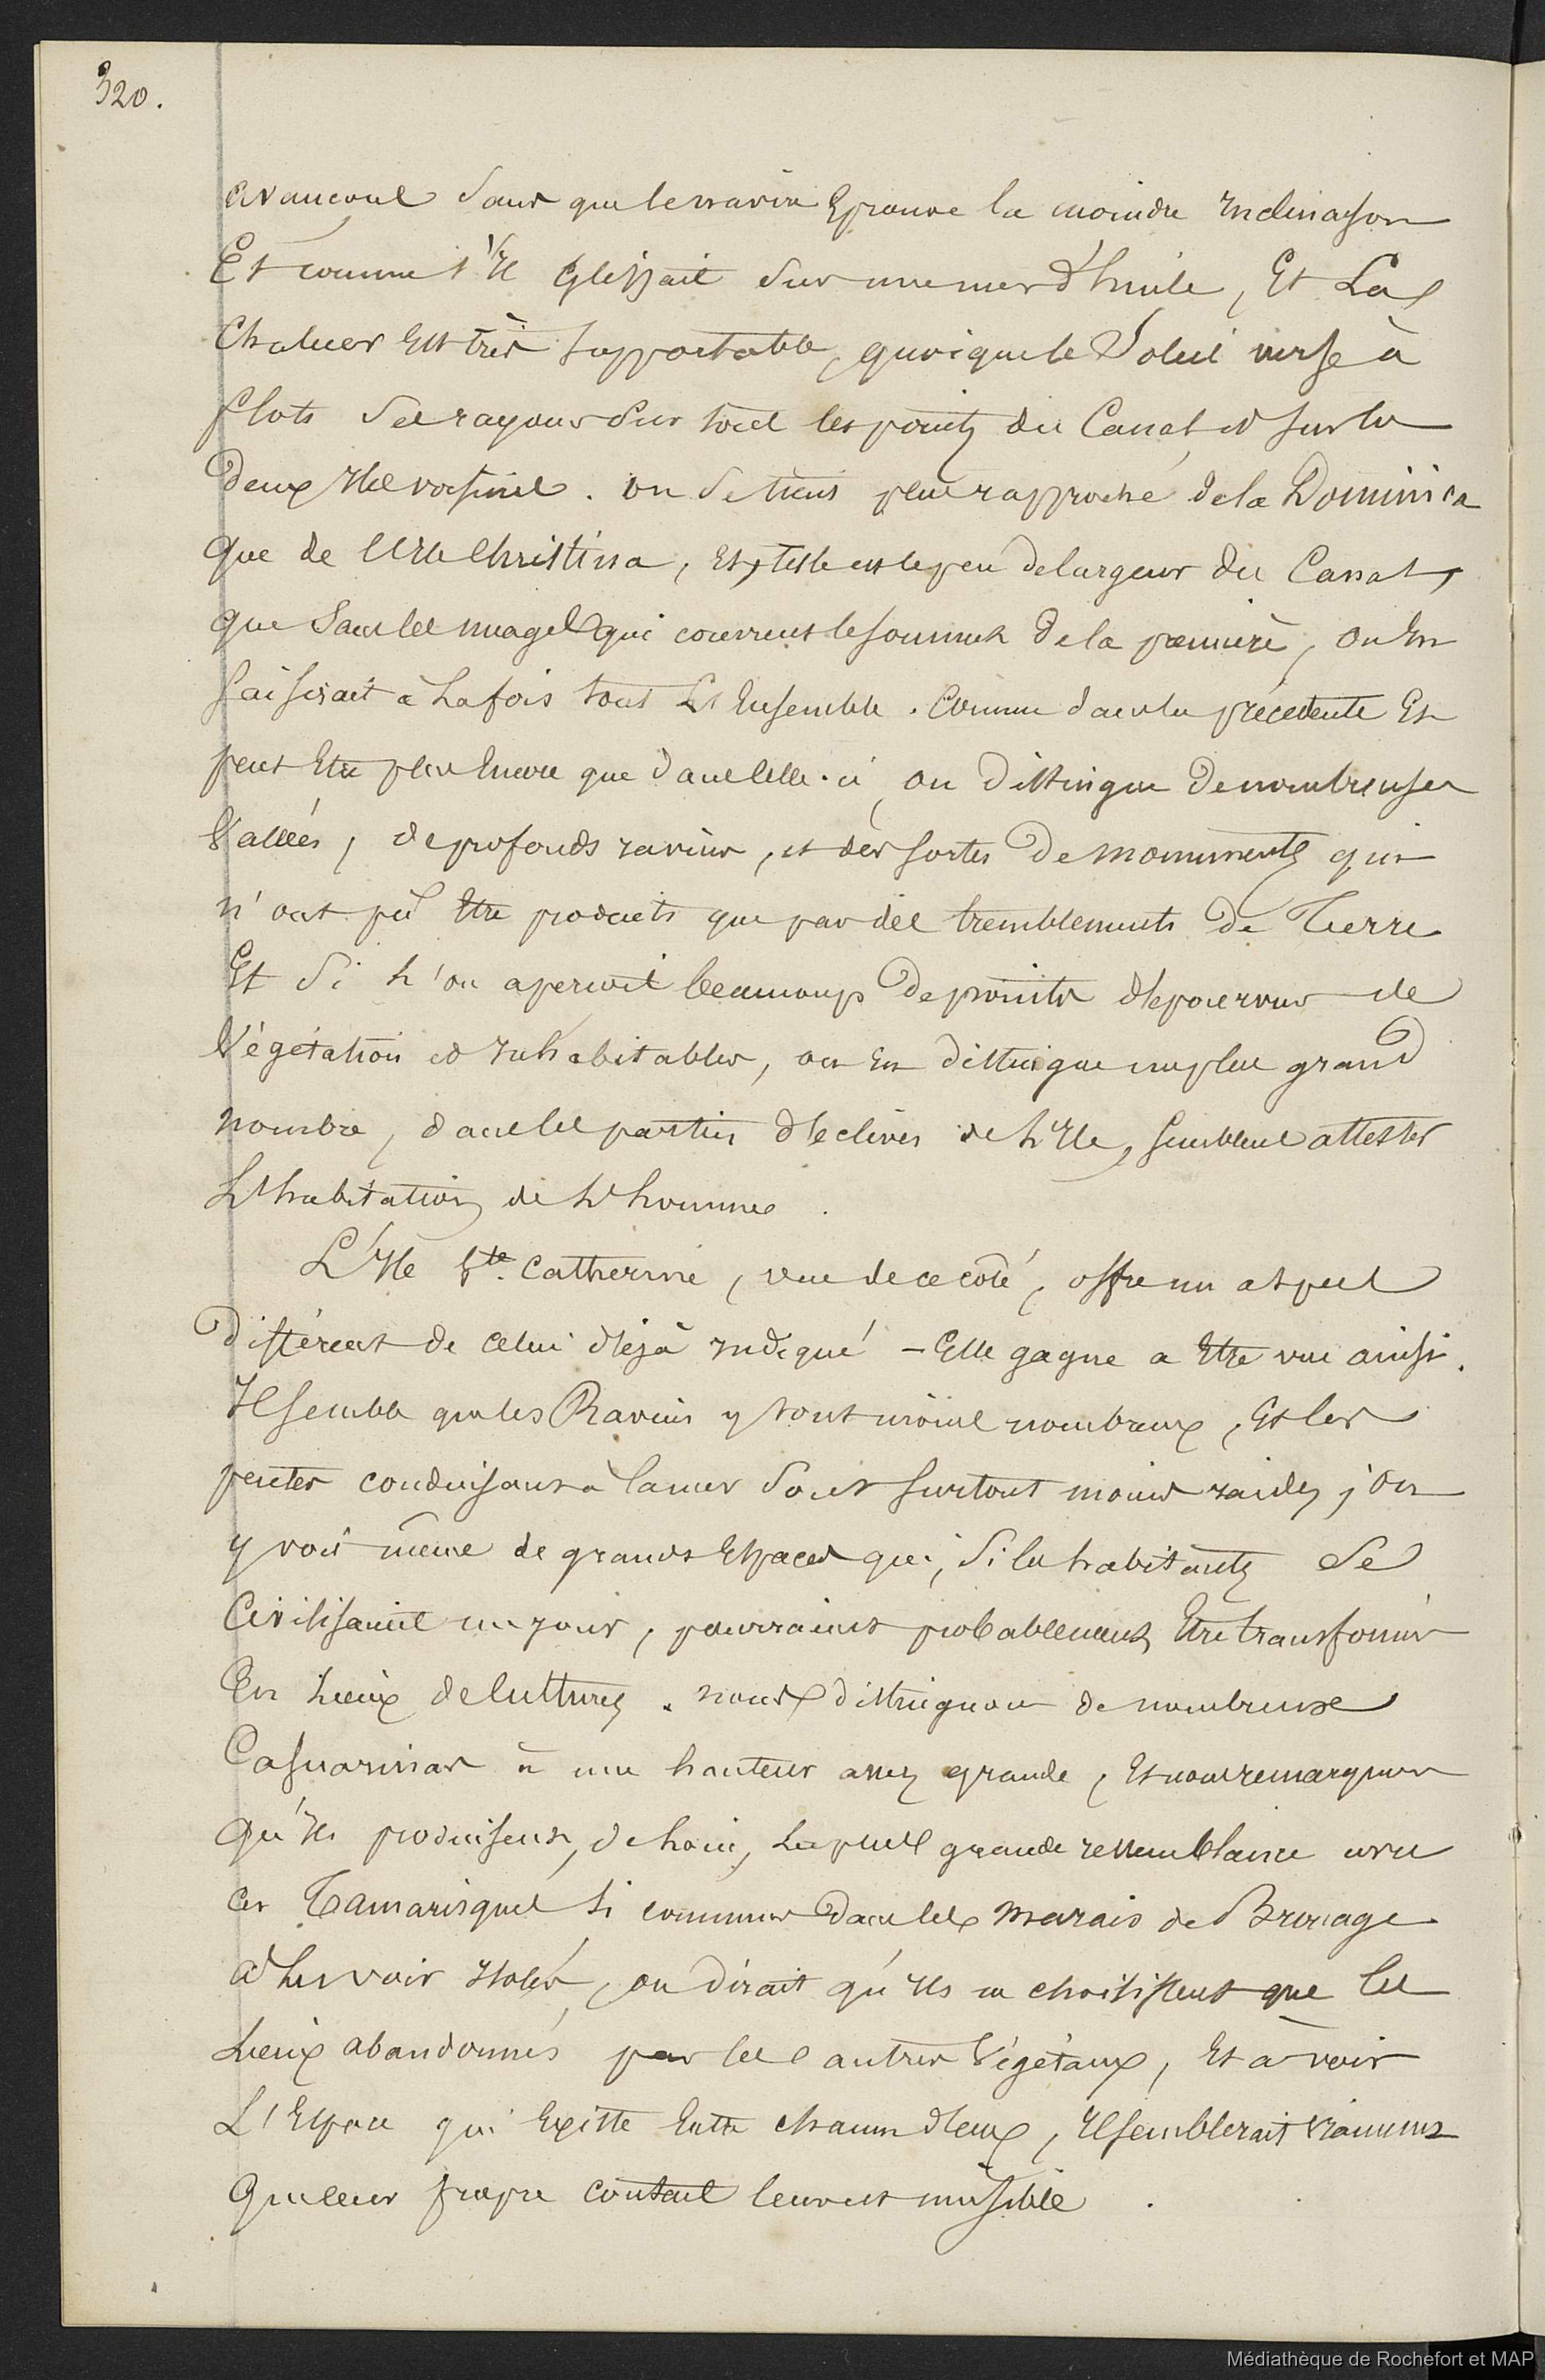 320.
avançons sans que le navire Eprouve la moindre Inclinaison
Et comme s'Il glissait sur une mer d'huile, Et La
Chaleur Est très supportable, quoique le Soleil verse à
flots ses rayons sur tous les points du Canal et sur les
deux Iles voisines. on se tient plus rapproché de la Dominica
que de l'Ile Christina, Et, telle est le peu de largeur du Canal,
que sans les nuages qui couvrent le sommet de la première, on En
saisirait à la fois tout L'Ensemble. Comme dans la précédente Et
peut Etre plus Encore que dans celle-ci, on distingue de nombreuses
Vallées, de profonds ravins, et des sortes de monuments qui
n'ont pû Etre produits que par des tremblements de Terre
Et si L'on aperçoit beaucoup de points dépourvus de
Végétation et Inhabitables, on En distingue un plus grand
nombre, dans les parties déclives de L'Ile, semblent attester
L'habitation de L'homme.
L'Ile Ste. Catherine, vue de ce côté, offre un aspect
différent de celui déjà Indiqué - Elle gagne a Etre vue ainsi.
Il semble que les Ravins y sont moins nombreux, Et les
pentes conduisant à la mer sont surtout moins raides; on
y voit même de grands Espaces qui, si les habitants se
Civilisaient un jour, pourraient probablement Etre transformés
En Lieux de cultures. nous distinguons de nombreux
Casuarinas à une hauteur assez grande, Et nous remarquons
qu'Ils produisent, de loin, La plus grande ressemblance avec
ces Tamarisques si communs dans les marais de Brouage
à Les voir Isolés, on dirait qu'Ils ne choisissent que les
Lieux abandonnés par les autres Végétaux, Et à voir
L'Espace qui Existe Entre chacun d'eux, Il semblerait vraiment
que leur propre contact leur est nuisible.
Médiathèque de Rochefort et MAP